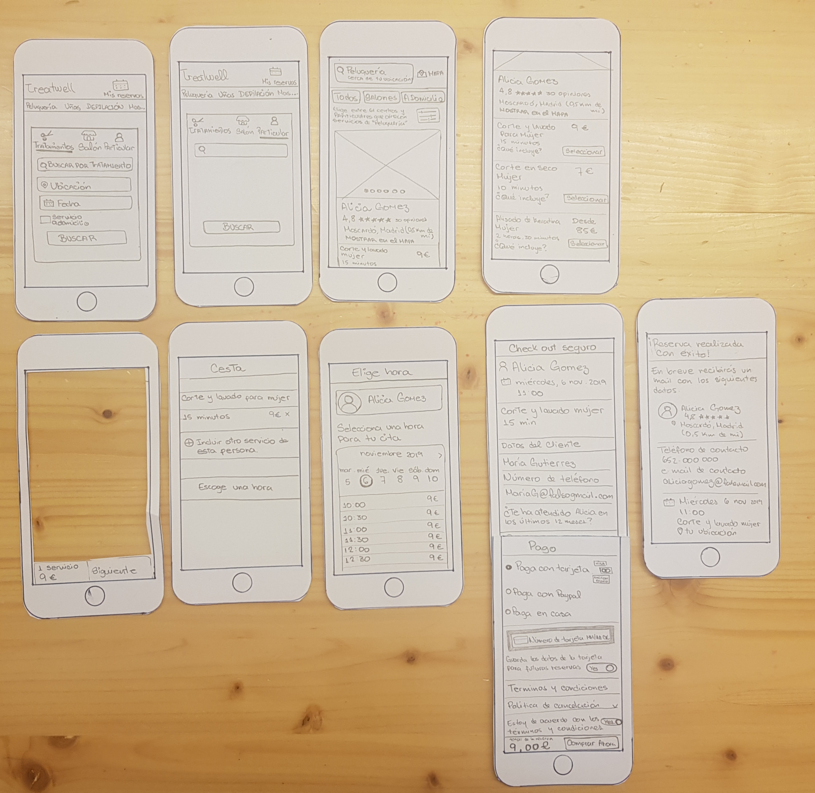 Treatwell
Mis reservas
Peluquería Uñas DEPILACIÓN Mas...
Tratamientos Salón Particular
BUSCAR POR TRATAMIENTO
Ubicación
Fecha
servicio a domicilio
BUSCAR
Treatwell
Mis reservas
Peluquería Uñas DEPILACIÓN Mas...
Tratamientos Salón Particular
BUSCAR
Peluquería
CERCA DE TU UBICACIÓN
MAPA
Todos Salones A Domicilio
Servicios de "Peluquería"
Alicia Gomez
4,8 ★★★★★ 20 opiniones
Moscardó, Madrid (0,5 km de mi)
MOSTRAR en el MAPA
Corte y lavado 9€
mujer
15 minutos
Alicia Gomez
4,8 ★★★★★ 20 opiniones
Moscardó, Madrid (0,5 km de mi)
MOSTRAR en el MAPA
Corte y lavado 9€
para Mujer
15 minutos
¿Qué incluye? Seleccionar
Corte en seco 7€
Mujer
10 minutos
¿Qué incluye? Seleccionar
Desde
Mujer 85€
¿Qué incluye? Seleccionar
1 servicio
9€
Siguiente
Cesta
Corte y lavado para mujer
15 minutos 9€ ×
Incluir otro servicio de
esta persona
Escoge una hora
Elige hora
Alicia Gomez
Selecciona una hora
para tu cita
noviembre 2019 >
mar mié jue vie sáb dom
5 6 7 8 9 10
10:00 9€
10:30 9€
11:00 9€
11:30 9€
12:00 9€
12:30 9€
Check out seguro
Alicia Gomez
miércoles, 6 nov. 2019
11:00
Corte y lavado mujer
15 min
Datos del Cliente
María Gutierrez
Número de teléfono
¿Te ha atendido Alicia en
los últimos 12 meses?
Pago
Paga con tarjeta
Paga con Paypal
Paga en casa
Número de tarjeta MM/AA CVC
Guarda los datos de la tarjeta
para futuras reservas
Terminos y condiciones
Politica de cancelación
Estoy de acuerdo con los
términos y condiciones
9,00€ Comprar Ahora
¡Reserva realizada
con éxito!
En breve recibirás un
mail con los siguientes
datos
Alicia Gomez
4,8 ★★★★★
Moscardó, Madrid
(0,5 km de mi)
Teléfono de contacto
652 000 000
e mail de contacto
Miercoles 6 nov 2019
11:00
Corte y lavado mujer
tu ubicación